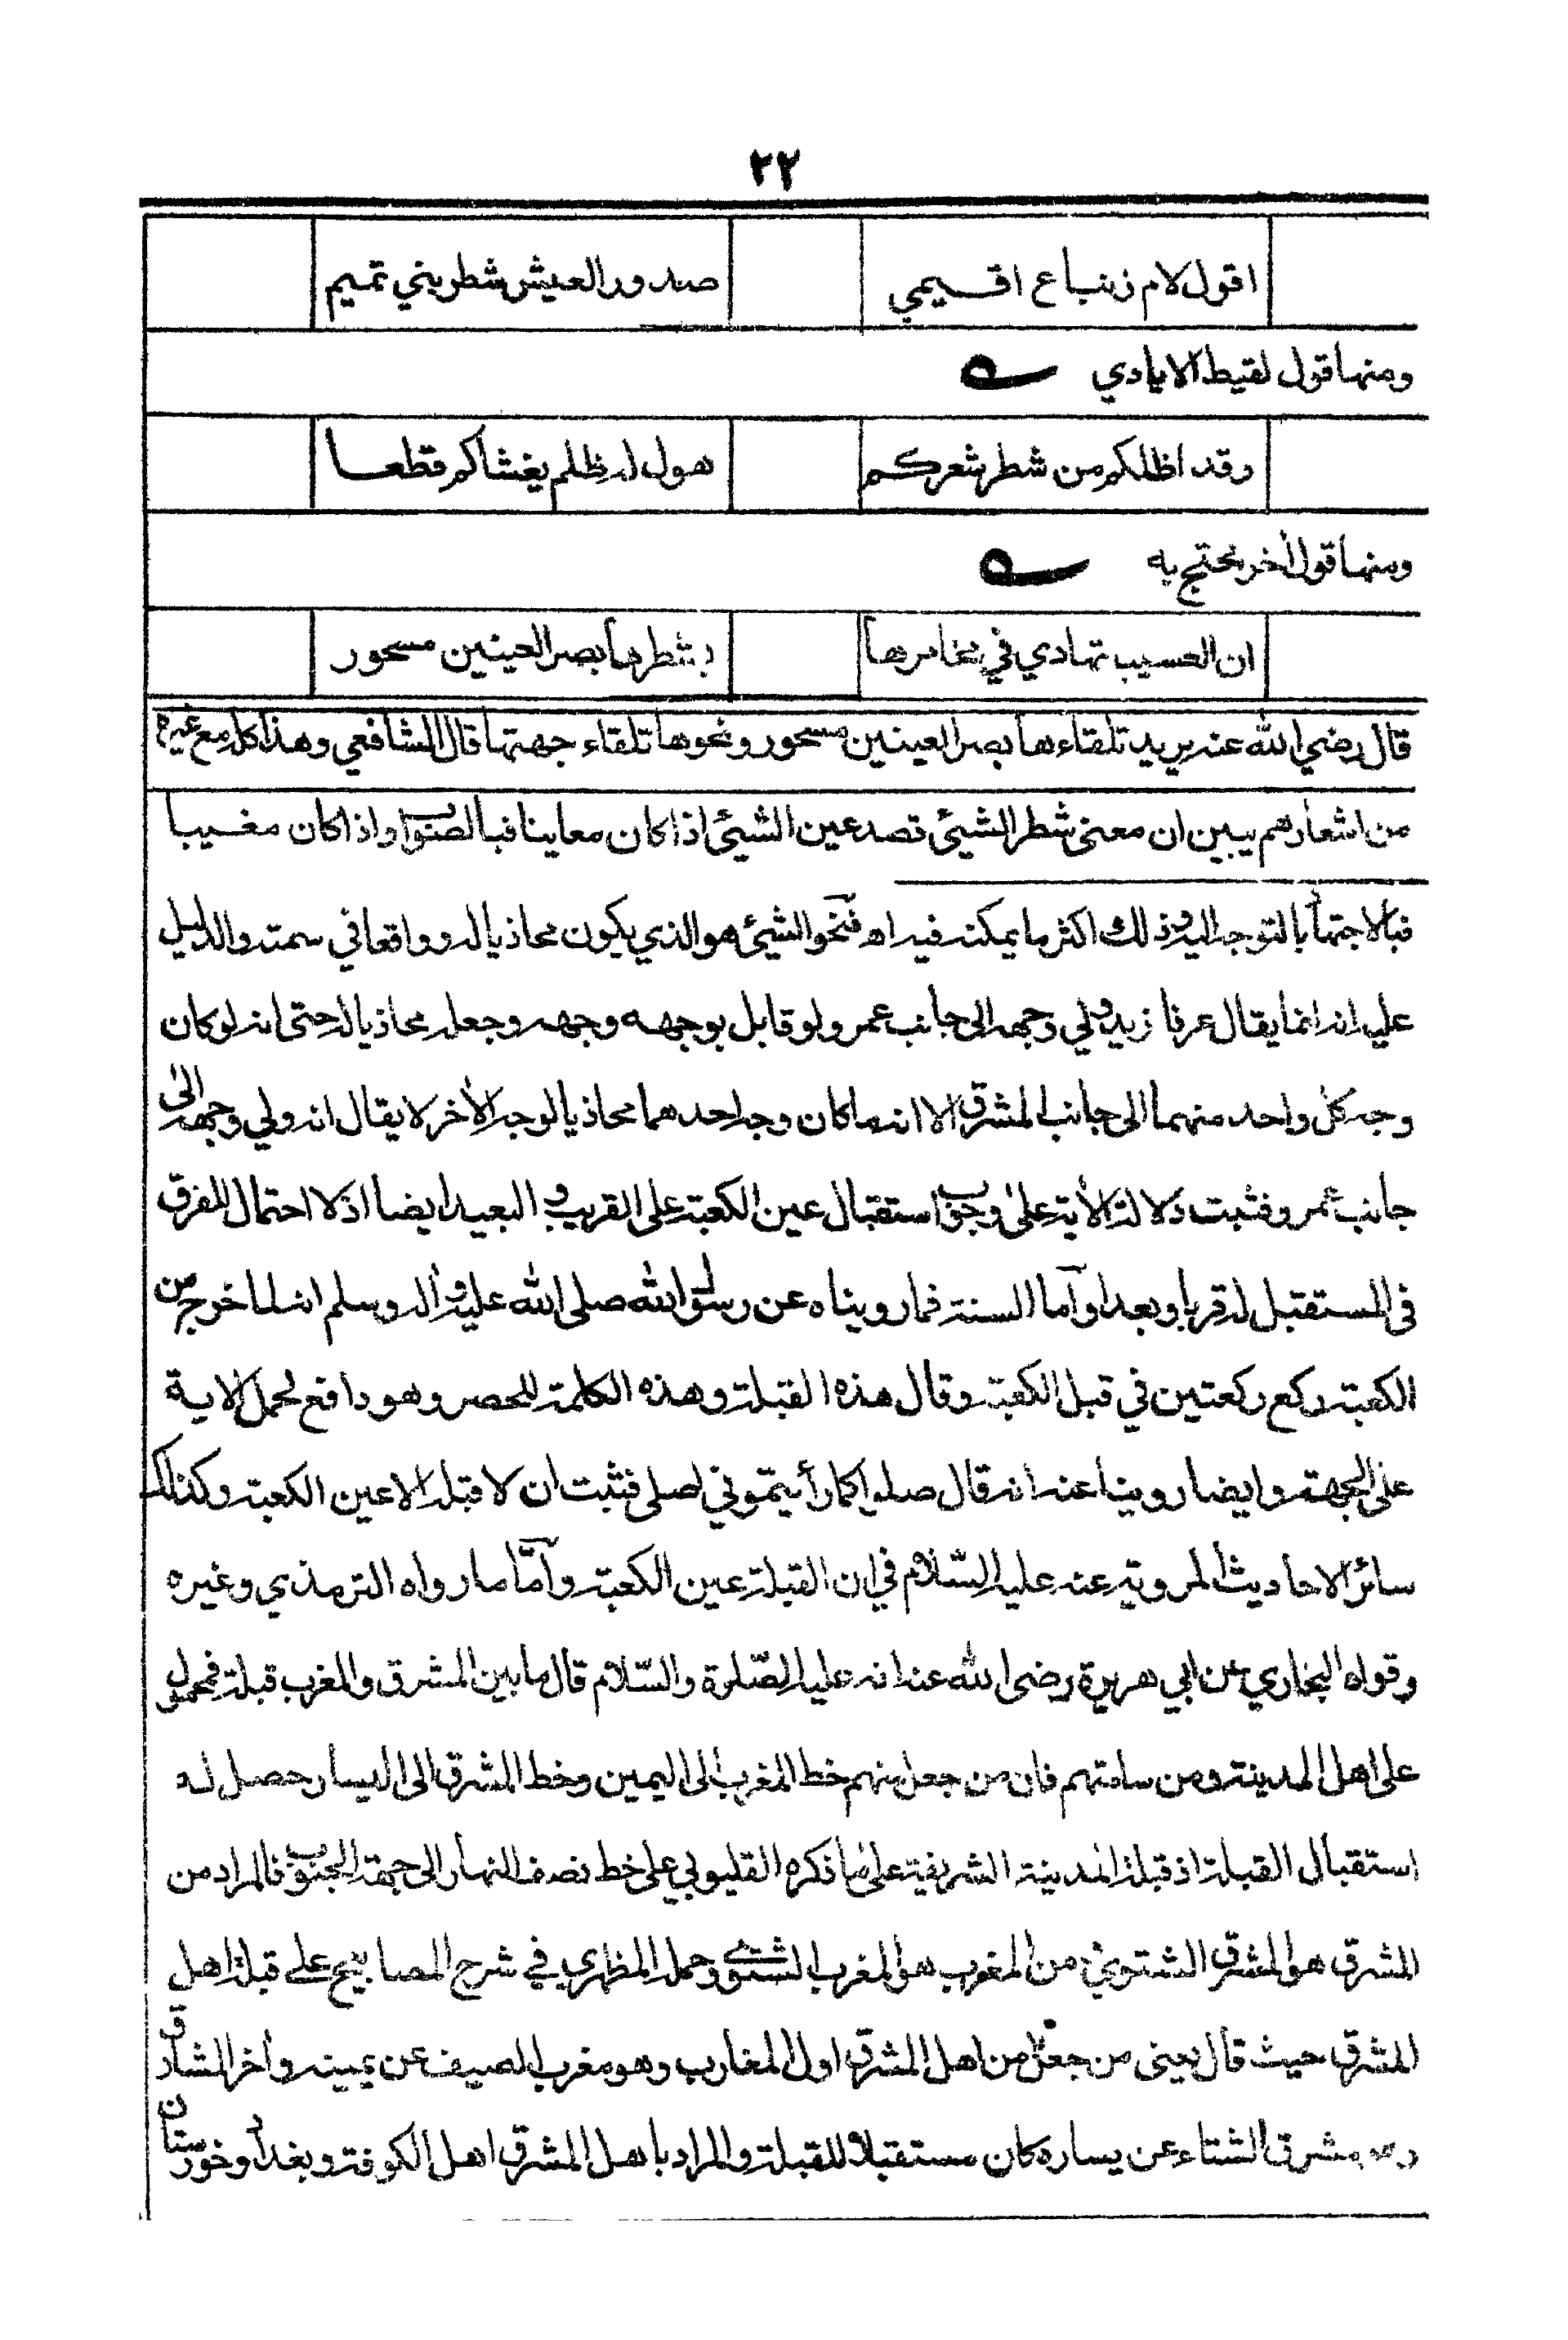 ٢٢
اقول لام زنباع اقيمي صدور العيش شطر بني تميم
ومنها قول لقيط الايادي
وقد اظلكم من شطر شعركم هول له ظلم يغشاكم قطعا
ومنها قول اخر يحتج به
ان العسيب تهادي في يخامرها بشطرها بصر العينين مسحور
قال رضي الله عنه يريد تلقاءها بصر العينين مسحور ونحوها تلقاء جهتها قال الشافعي وهذا كله مع غيره
من اشعارهم يبين ان معنى شطر الشيئ قصد عين الشيئ اذا كان معاينا فبالصواب واذا كان مغيبا
فبالاجتهاد بالتوجه اليه وذلك اكثر ما يمكنه فيه اه فنحو الشيئ هو الذي يكون محاذيا له وواقعا في سمته والدليل
عليه انه انما يقال عرفا زيد ولي وجهه الى جانب عمر ولو قابل بوجهه وجهه وجعله محاذيا له حتى انه لو كان
وجه كل واحد منهما الى جانب المشرق الا انه ما كان وجه احدهما محاذيا لوجه الأخر لا يقال انه ولي وجهه الى
جانب عمر وفثبت دلالة الأية على وجوب استقبال عين الكعبة على القريب و البعيد ايضا اذ لا احتمال للفرق
في المستقبل له قربا وبعدا وآما السنة فمارويناه عن رسول الله صلى الله عليه وأله وسلم انه لما خرج من
الكعبة ركع ركعتين في قبل الكعبة وقال هذه القبلة وهذه الكلمة للحصر وهو دافع لحمل الاية
على الجهة وايضا روينا عنه انه قال صلوا كما رأيتموني اصلى فثبت ان لا قبلة الا عين الكعبة وكذلك
سائر الاحاديث المروية عنه عليه السّلام في ان القبلة عين الكعبة وآمّا ما رواه الترمذي وغيره
وقواه البخاري عن ابي هريرة رضى الله عنه انه عليه الصّلوة والسّلام قال ما بين المشرق والمغرب قبلة فمحمول
على اهل المدينة ومن سامتهم فان من جعل منهم خط المغرب الى اليمين وخط المشرق الى اليسار حصل له
استقبال القبلة اذ قبلة المدينة الشريفة على ما ذكره القليوبي على خط نصف النهار الى جهة الجنوب فالمراد من
المشرق هو المشرق الشتوي و من المغرب هو المغرب الشتوي وحمله المظهري في شرح المصابيح على قبلة اهل
المشرق حيث قال يعنى من جعل من اهل المشرق اول المغارب وهو مغرب الصيف عن يمينه وأخر المشارق
وهو مشرق الشتاء عن يساره كان مستقبلا للقبلة والمراد باهل المشرق اهل الكوفة وبغداد وخوزستان